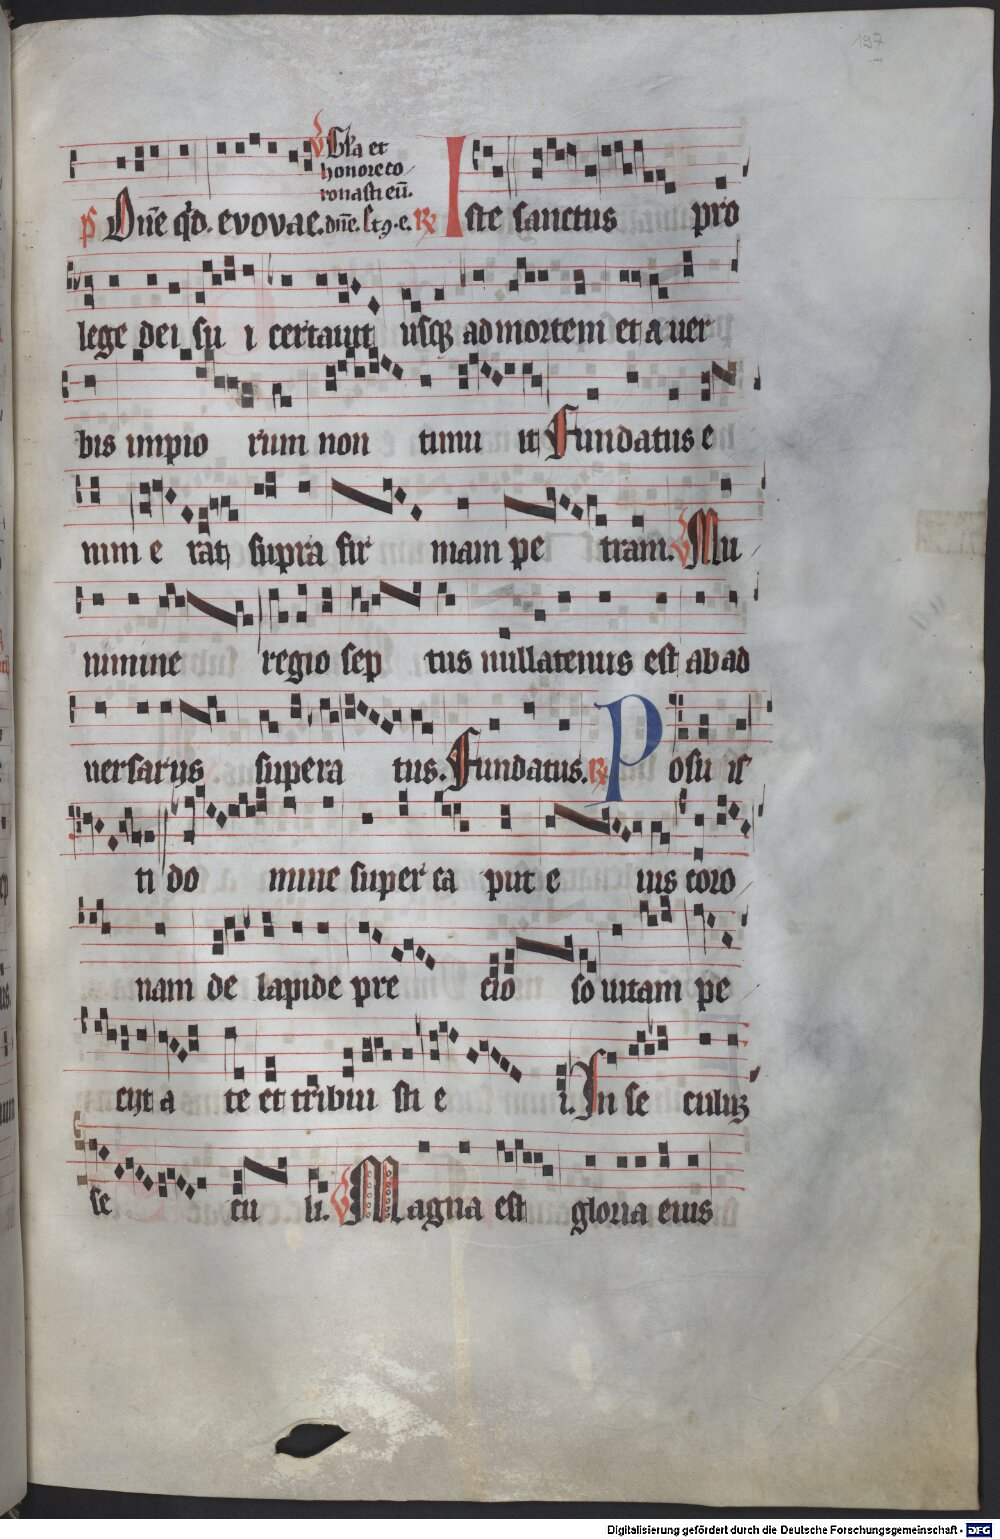 197
V Gl'a et
honore co
ronasti eu̅.
ps Dn̅e q̇d. evovae. dn̅e. st9.e. R Iste sanctus pro
lege dei su i certauit usqꝫ ad mortem et a uer
bis impio rum non timu it Fundatus e
nim e rat supra fir mam pe tram. V Mu
nimine regio sep tus nullatenus est ab ad
uersarijs supera tus. Fundatus. R Posu is
ti do mine super ca put e ius coro
nam de lapide pre cio so uitam pe
cijt a te et tribui sti e i. In se culuꝫ
se cu li. V Magna est gloria eius
Digitalisierung gefördert durch die Deutsche Forschungsgemeinschaft - DFG